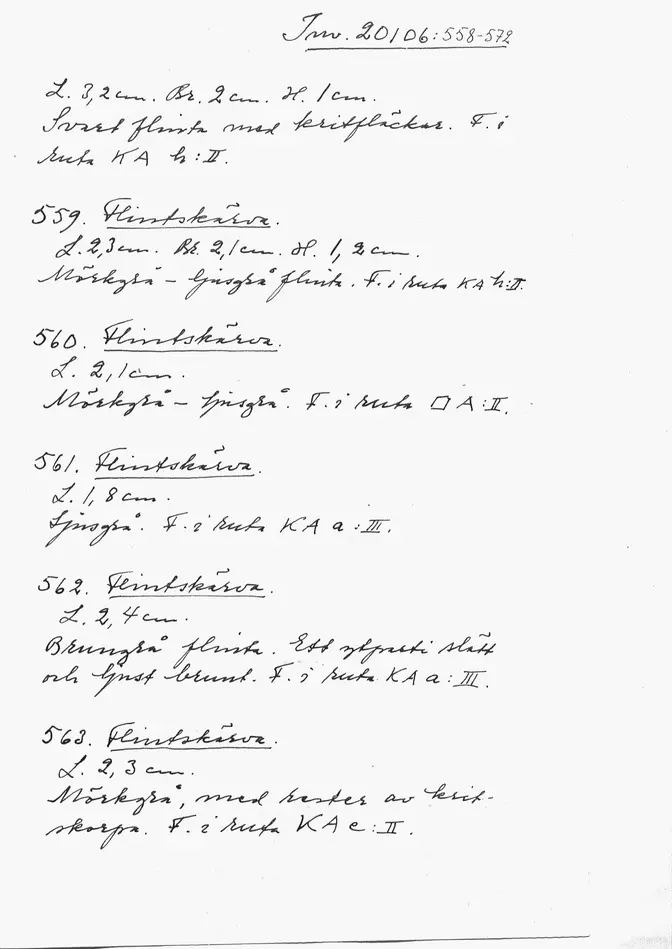 Inv. 20106:558-572
L. 3,2cm. Br. 2cm. H. 1cm.
Svart flinta med kritfläckar. F. i
ruta KA h:II.
559. Flintskärva.
L. 2,3cm. Br. 2,1cm. H. 1,2cm.
Mörkgrå - ljusgrå flinta. F. i ruta KA h:II.
560. Flintskärva.
L. 2,1cm.
Mörkgrå - ljusgrå. F. i ruta □ A:II.
561. Flintskärva.
L. 1,8cm.
Ljusgrå. F. i ruta KA a:III.
562. Flintskärva.
L. 2,4cm.
Brungrå flinta. Ett ytparti slätt
och ljust brunt. F. i ruta KA a:III.
563. Flintskärva.
L. 2,3cm.
Mörkgrå, med rester av krit-
skorpa. F. i ruta KA e:II.